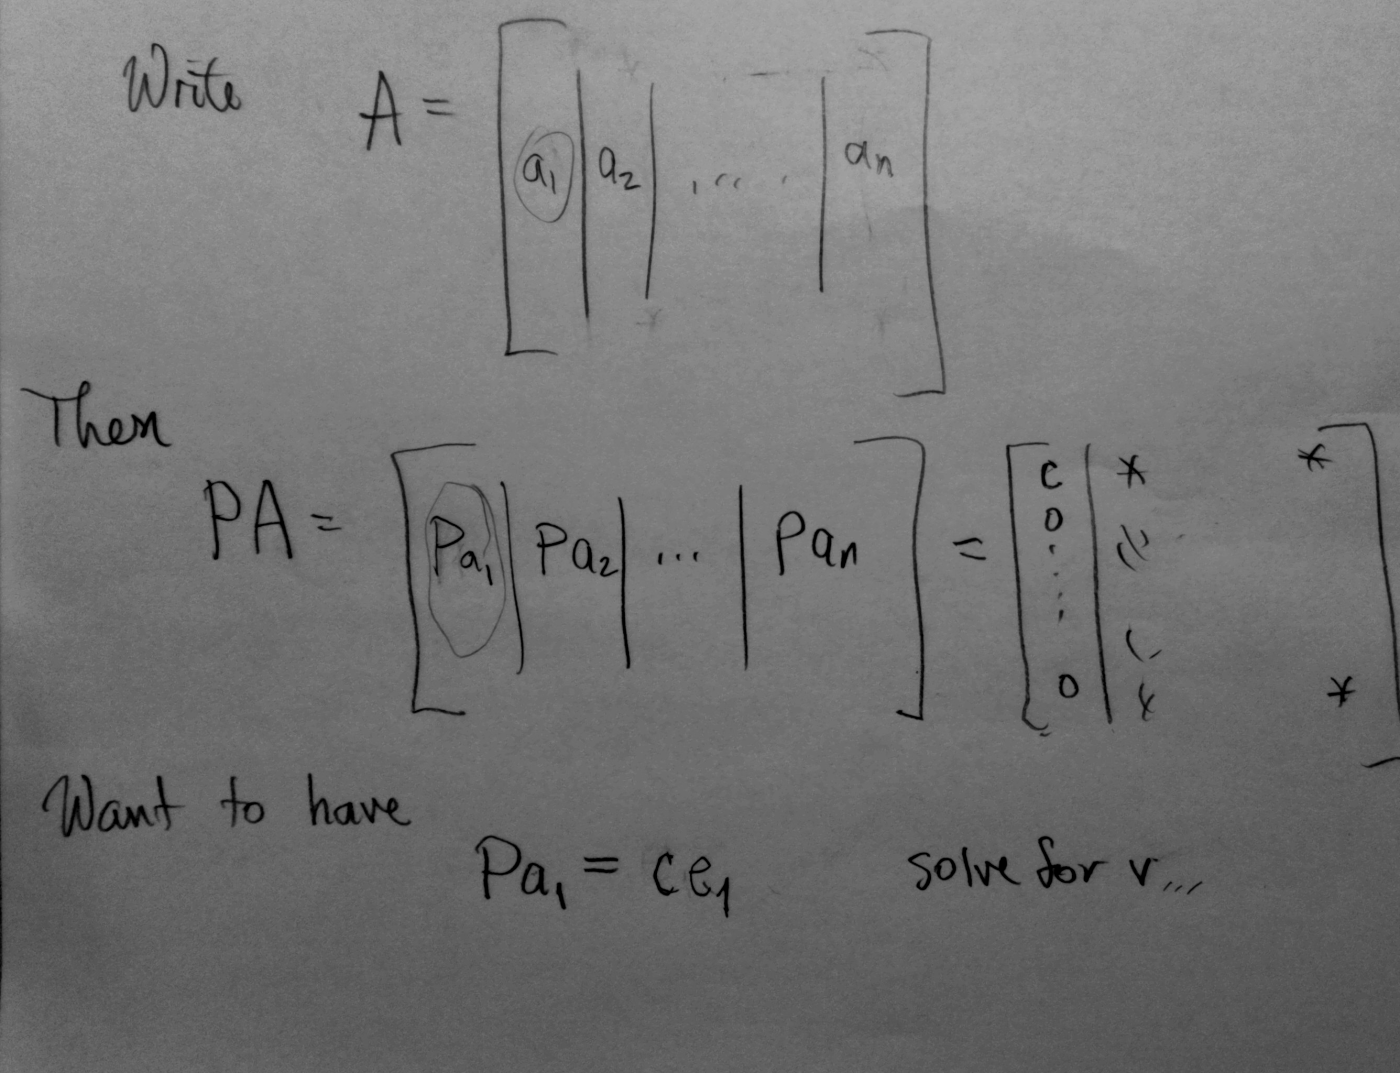 Write A = [ a₁ | a₂ | ..... | aₙ ]
Then
PA = [ Pa₁ | Pa₂ | ... | Paₙ ] = [ c | * *
0
⋮
0 | * * ]
Want to have
Pa₁ = ce₁ solve for v...